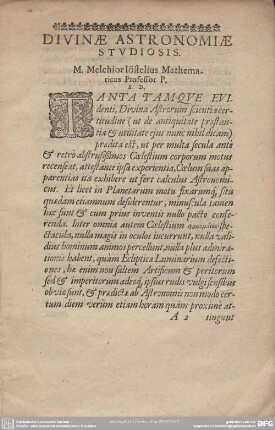 DIVINÆ ASTRONOMIÆ
STVDIOSIS.
M. Melchior Iöstelius Mathema-
ticus Professor P.
S. D.
TANTA TAMQVE EVI
denti, Divina Astrorum scientia cer-
titudine (ut de antiquitate præstan-
tia & utilitate ejus nunc nihil dicam)
prædita est, ut per multa secula ante
& retrò abstrusissimos Cælestium corporum motus
recenseat, attestante ipsa experientia, Cælum suas ap-
parentias ita exhibere ut fert calculus Astronomi-
cus. Et licet in Planetarum motu fixarumq́; situ
quædam etiamnum desiderentur, minuscula tamen
hæc sunt & cum prius inventis nullo pacto confe-
renda. Inter omnia autem Cælestium
spectacula, nulla magis in oculos incurrunt, nulla vali-
dius hominum animos percellunt, nulla plus admira-
tionis habent, quàm Ecliptica Luminarium defecti-
ones, hæ enim non saltem Artificum & peritorum
sed & imperitorum adeoq́; ipsius rudis vulgi sensibus
obviæ sunt, & prædictæ ab Astronomis non modo cer-
tum diem verùm etiam horam quàm proximè at-
A 2 tingunt